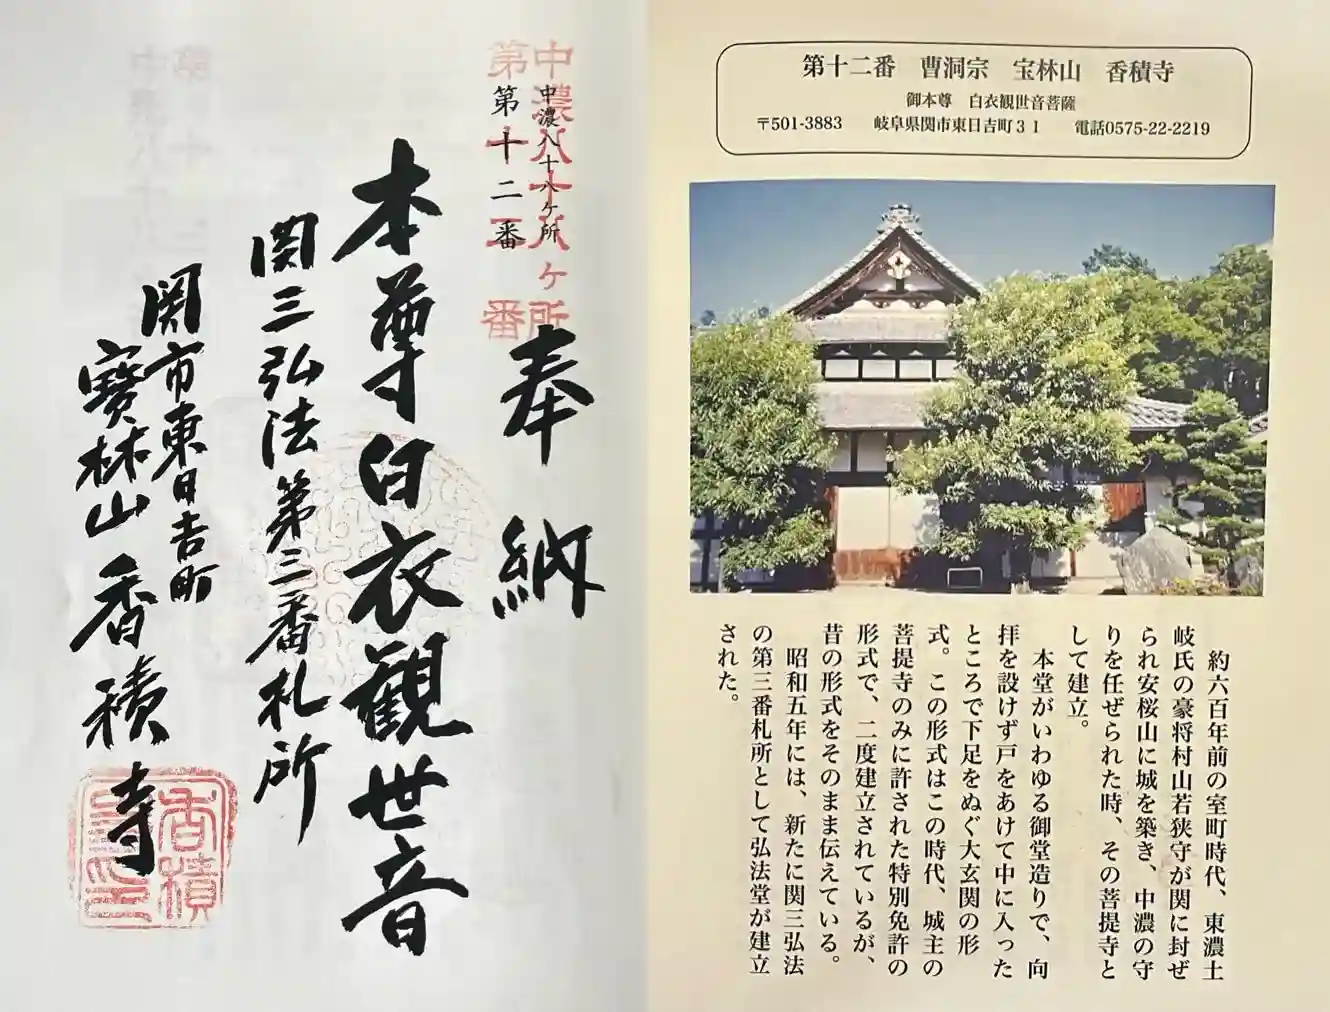 中濃八十八ヶ所
第十二番
中濃八十八ヶ所
第十二番
奉納
本尊白衣観世音
関三弘法第三番札所
関市東日吉町
寳林山香積寺
香積
寺印
第十二番　曹洞宗　宝林山　香積寺
御本尊　白衣観世音菩薩
〒501-3883　岐阜県関市東日吉町３１　電話0575-22-2219
約六百年前の室町時代、東濃土
岐氏の豪将村山若狭守が関に封ぜ
られ安桜山に城を築き、中濃の守
りを任ぜられた時、その菩提寺と
して建立。
本堂がいわゆる御堂造りで、向
拝を設けず戸をあけて中に入った
ところで下足をぬぐ大玄関の形
式。この形式はこの時代、城主の
菩提寺のみに許された特別免許の
形式で、二度建立されているが、
昔の形式をそのまま伝えている。
昭和五年には、新たに関三弘法
の第三番札所として弘法堂が建立
された。